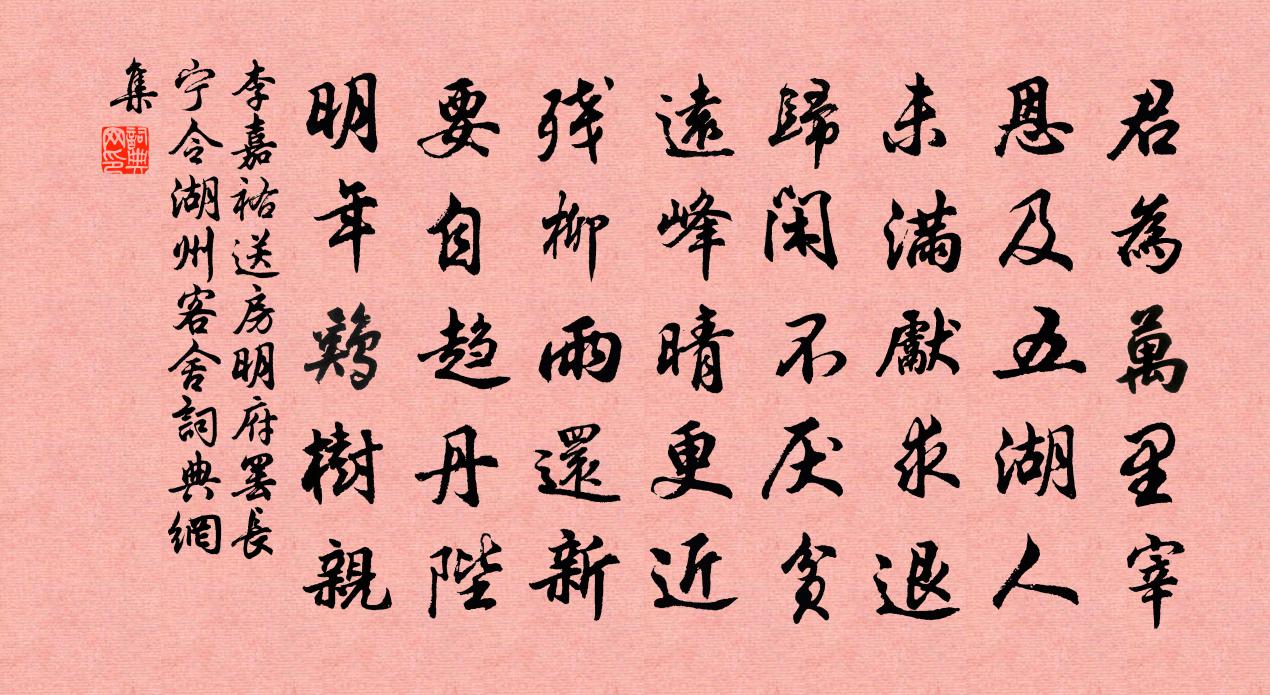 君為萬里宰
恩及五湖人
未滿獻求退
歸閑不厌貧
遠峰晴更近
残柳雨還新
要自趋丹陛
明年鷄樹親
李嘉祐送房明府罢長
宁令湖州客舍詞典網
集
詞典网印